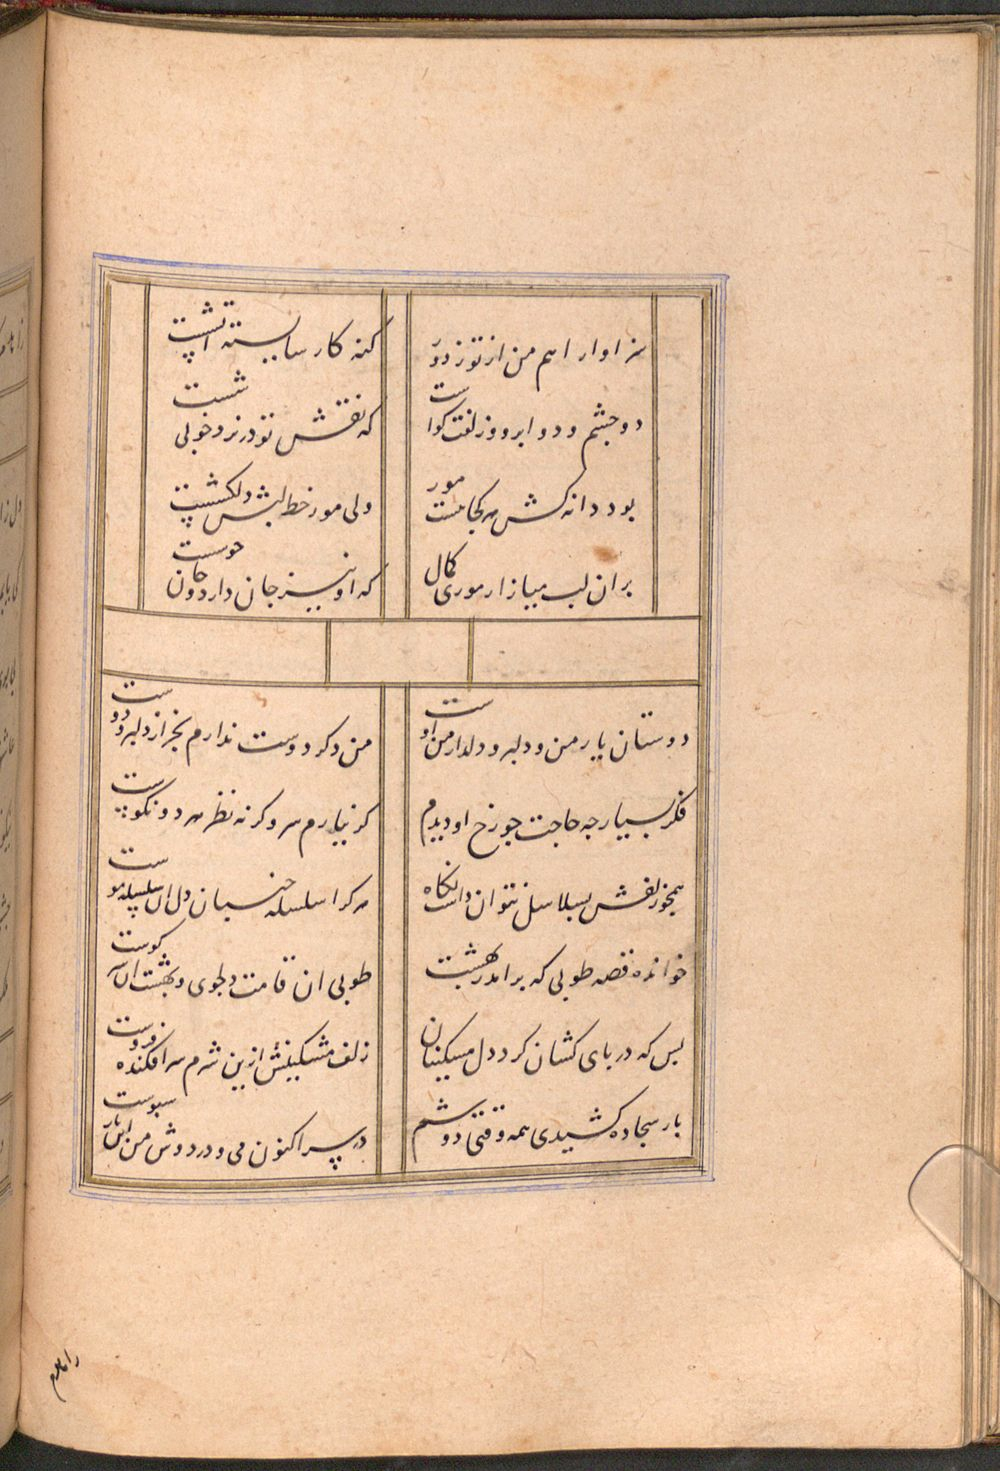 سزاوارا هم من از تو ز دور
کنه کار بایسته آتشست
دو چشم و دو ابرو و زلفت کواست
که نقش تو در نرد خوبی شست
بود دانه کش هر کجا مور هست
ولی مور خط لبش دلکشست
بران لب میازار موری کمال
که او نیز جان دارد و جان خوست
دوستان یار من و دلبر و دلدار من اوست
من دکر دوست ندارم بجز از دلبر و دوست
فکر بسیار چه حاجت چو رخ او دیدم
کر نیارم سر و کر نه نظر مه دو نکوست
بجز زلفش بسلاسل نتوان داشت نکاه
هر کرا سلسله جنبان دل ان سلسله موست
خوانده قصه طوبی که برامد ز بهشت
طوبی ان قامت دلجوی و بهشت ان سر کوست
بس که در پای کشان کرد دل مسکینان
زلف مشکینش ازین شرم سر افکنده فروست
بار سجاده کشیدی همه وقتی دوشم
در پیر اکنون می و در دوش من این بار سبوست